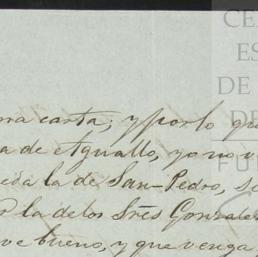 CE
ES
DE
DE
FU
ma carta; y por lo qu
a de Aguallo, yo no v
eda la de San-Pedro, se
la de los Sres Gonzale
ve bueno, y que venga